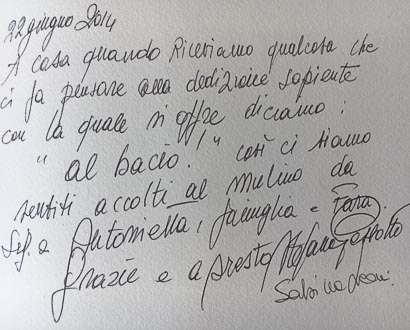 22 giugno 2014
A casa quando Riceviamo qualcosa che
ci fa pensare alla dedizione sapiente
con la quale si offre diciamo:
" al bacio! " così ci siamo
sentiti accolti al mulino da
Antoniella, famiglia e Fara.
Grazie e a presto Stefano
Sabina